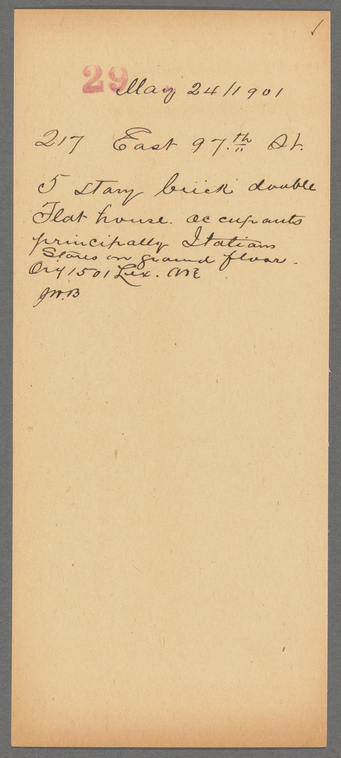 29 May 24/1901
217 East 97.th St.
5 story brick double
Flat house. occupants
principally Italians
Stores on ground floor.
1501 Lex. Ave
JWB